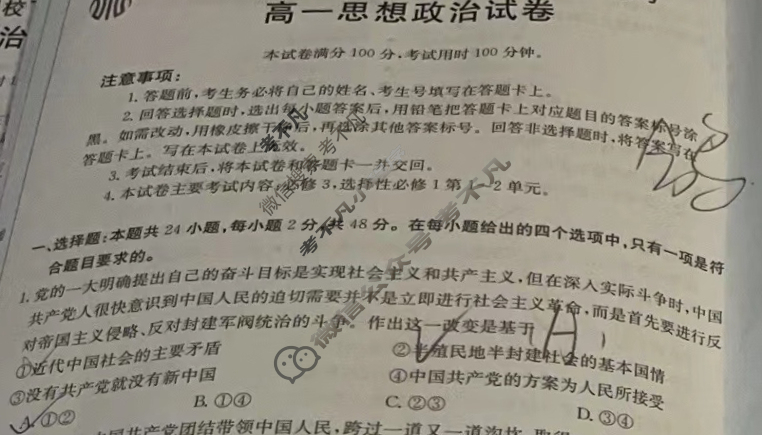 校
治
高一思想政治试卷
本试卷满分100分,考试用时100分钟。
注意事项:
1. 答题前,考生务必将自己的姓名、考生号填写在答题卡上。
2. 回答选择题时,选出每小题答案后,用铅笔把答题卡上对应题目的答案标号涂
黑。如需改动,用橡皮擦干净后,再选涂其他答案标号。回答非选择题时,将答案写在
答题卡上。写在本试卷上无效。
3. 考试结束后,将本试卷和答题卡一并交回。
4. 本试卷主要考试内容:必修3,选择性必修1第 2单元。
一、选择题:本题共24小题,每小题2分,共48分。在每小题给出的四个选项中,只有一项是符
合题目要求的。
1. 党的一大明确提出自己的奋斗目标是实现社会主义和共产主义,但在深入实际斗争时,中国
共产党人很快意识到中国人民的迫切需要并不是立即进行社会主义革命,而是首先要进行反
对帝国主义侵略、反对封建军阀统治的斗争。作出这一改变是基于(A)
①近代中国社会的主要矛盾 ②半殖民地半封建社会的基本国情
③没有共产党就没有新中国 ④中国共产党的方案为人民所接受
A. ①② B. ①④ C. ②③ D. ③④
国共产党团结带领中国人民,跨过一道又一道沟坎,取得
微信搜索 考不凡
考不凡
微信公众号 考不凡